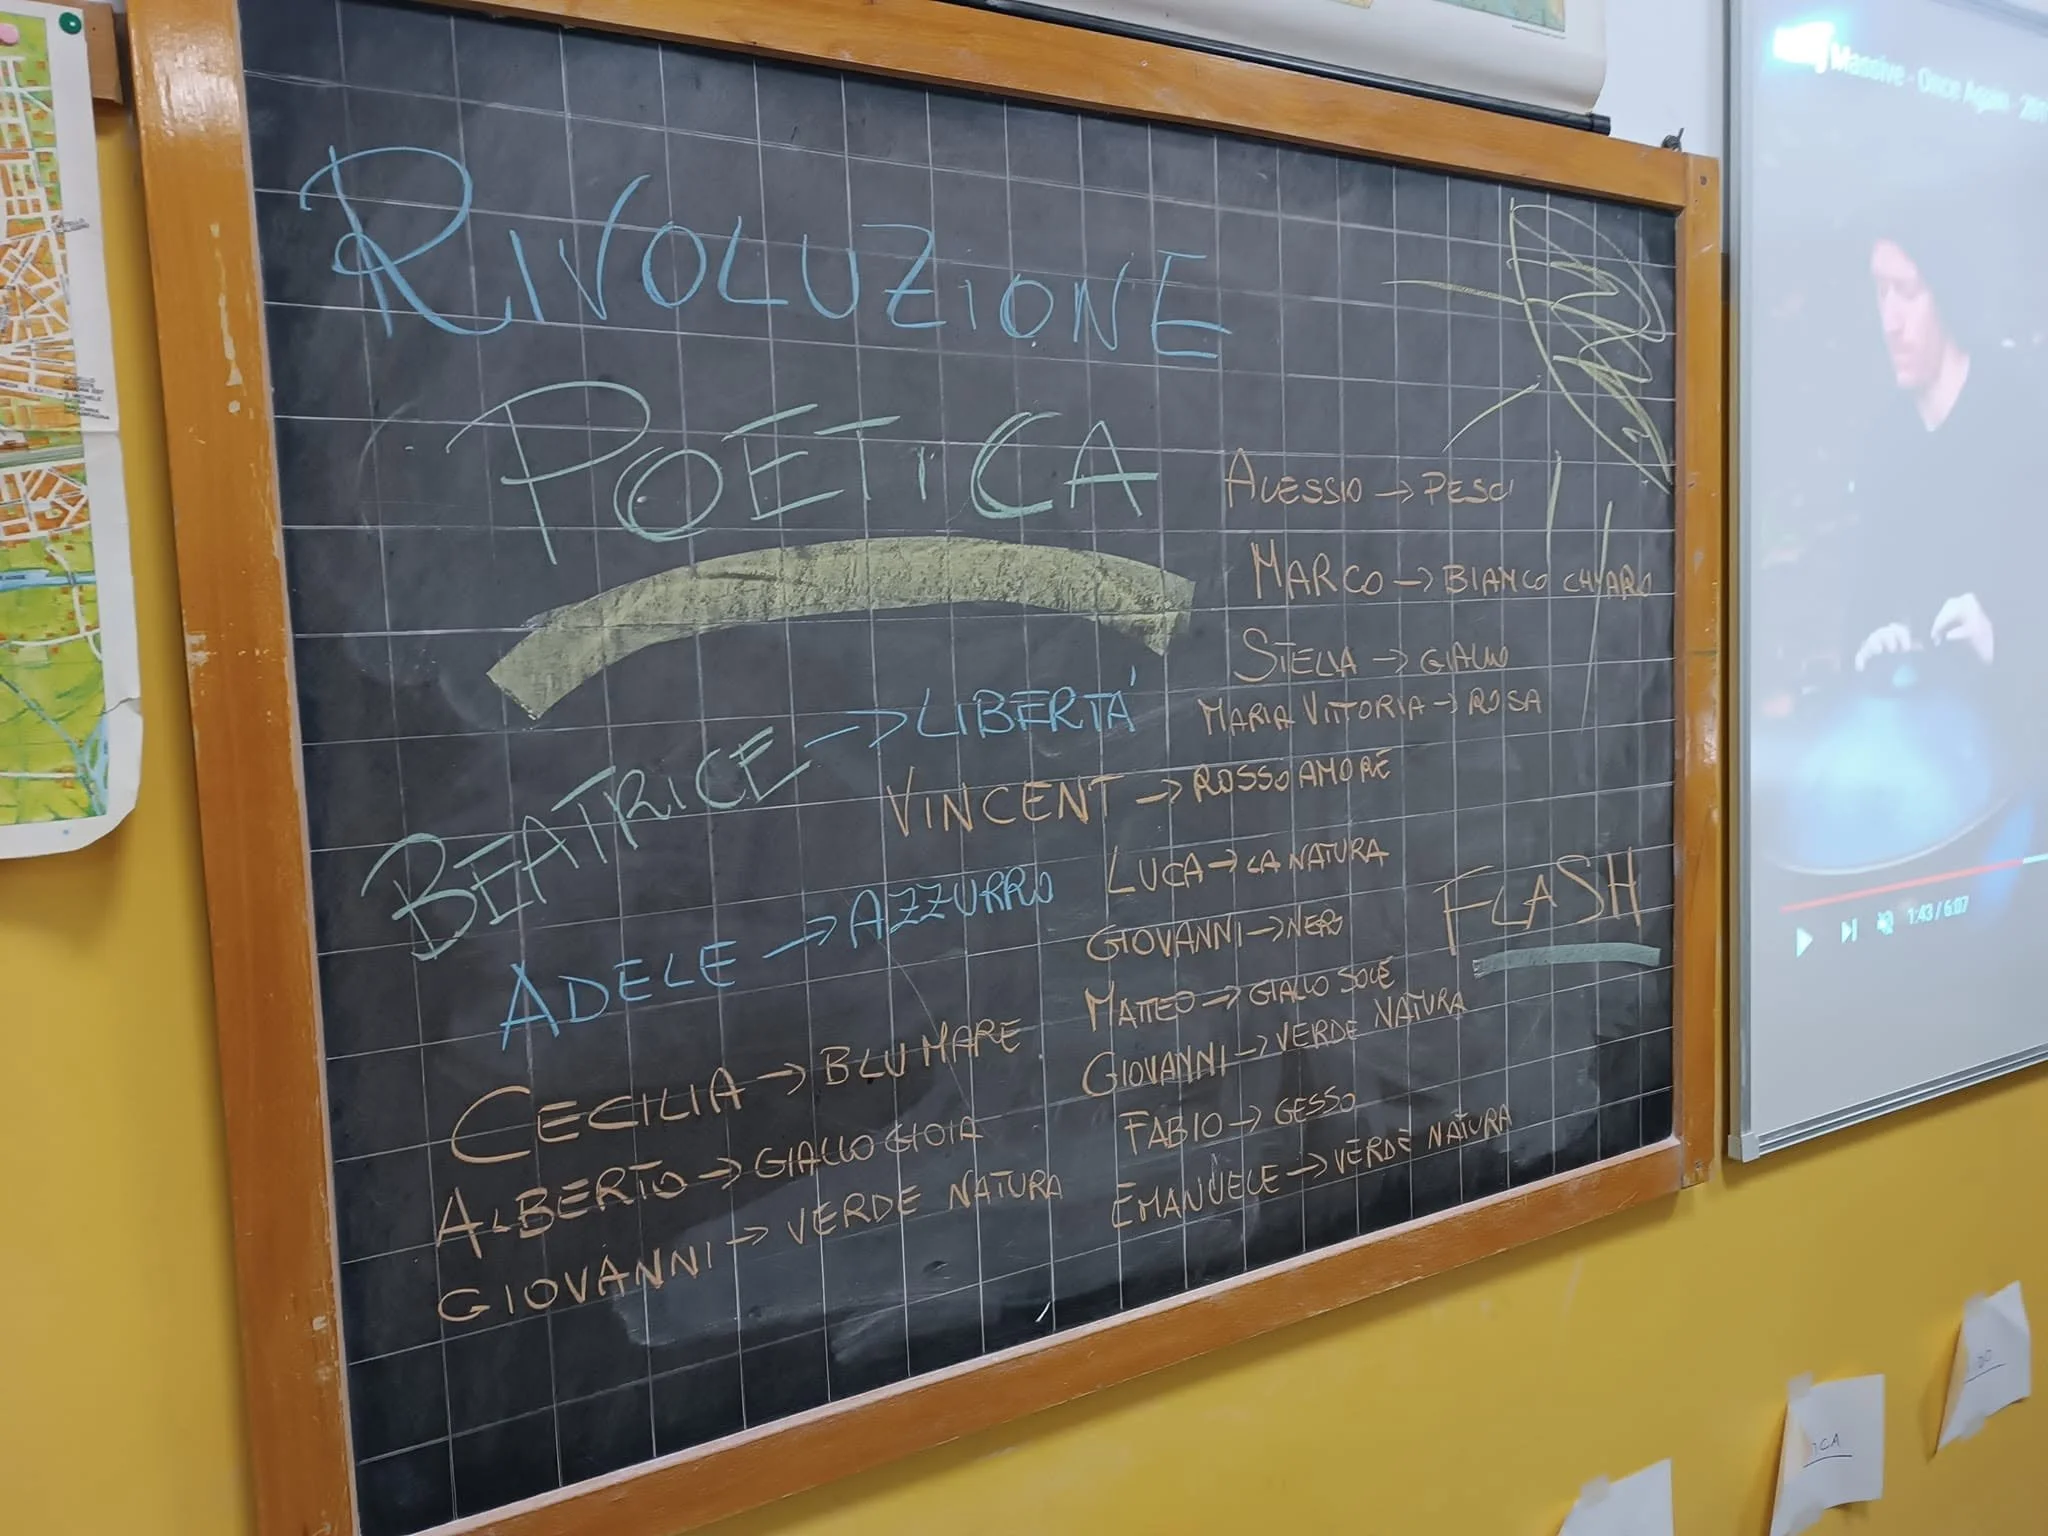 RIVOLUZIONE
POETICA
BEATRICE → LIBERTÁ
ADELE → AZZURRO
CECILIA → BLU MARE
ALBERTO → GIALLO GIOIA
GIOVANNI → VERDE NATURA
ALESSIO → PESCI
MARCO → BIANCO CHIARO
STELLA → GIALLO
MARIA VITTORIA → ROSA
VINCENT → ROSSO AMORE
LUCA → LA NATURA
GIOVANNI → NERO
MATTEO → GIALLO SOLE
GIOVANNI → VERDE NATURA
FABIO → GESSO
EMANUELE → VERDE NATURA
FLASH
Massive - Once Again
1:43 / 6:07